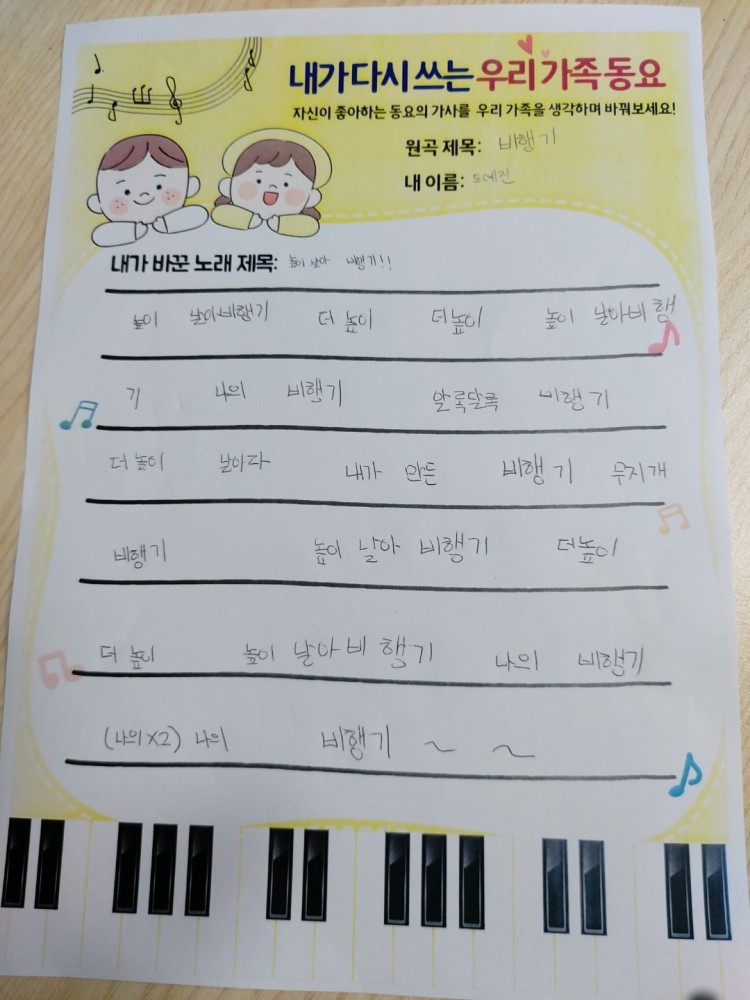 내가 다시 쓰는 우리 가족 동요
자신이 좋아하는 동요의 가사를 우리 가족을 생각하며 바꿔보세요!
원곡 제목: 비행기
내 이름: 도예진
내가 바꾼 노래 제목: 높이 날아 비행기!!
높이 날아비행기 더 높이 더높이 높이 날아비행
기 나의 비행기 알록달록 비행기
더 높이 날아다 내가 만든 비행기 무지개
비행기 높이 날아 비행기 더높이
더 높이 높이 날아 비행기 나의 비행기
(나의X2) 나의 비행기 ~ ~